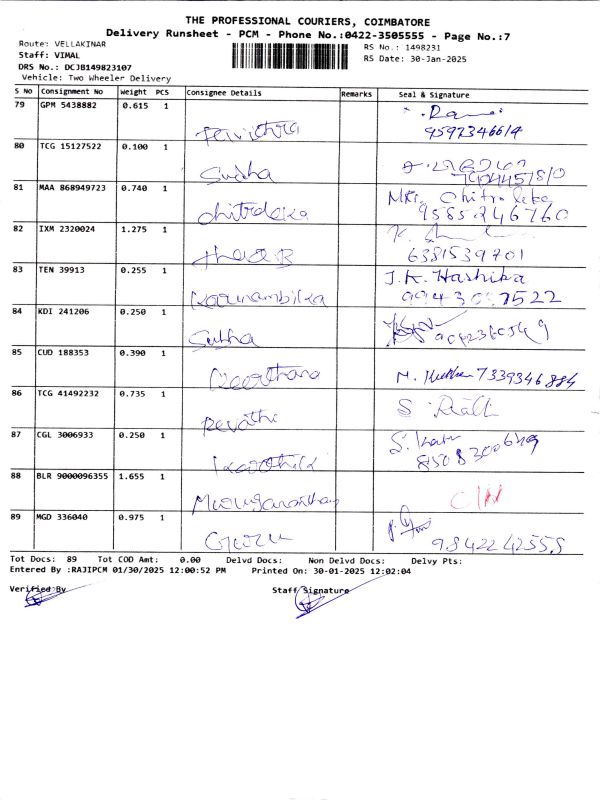 THE PROFESSIONAL COURIERS, COIMBATORE
Delivery Runsheet - PCM - Phone No.:0422-3505555 - Page No.:7
Route: VELLAKINAR
RS No.: 1498231
Staff: VIMAL
RS Date: 30-Jan-2025
DRS No.: DCJB149823107
Vehicle: Two Wheeler Delivery
S No Consignment No Weight PCS Consignee Details Remarks Seal & Signature
79 GPM 5438882 0.615 1
Pavithra 9597346614
80 TCG 15127522 0.100 1
Sudha
81 MAA 868949723 0.740 1
chitraleka Mrs. Chitra leka
9585246760
82 IXM 2320024 1.275 1
6381539701
83 TEN 39913 0.255 1
Karunambika J.K. Hashika
84 KDI 241206 0.250 1
Subha
85 CUD 188353 0.390 1
Keerthana 7339346884
86 TCG 41492232 0.735 1
Revathi
87 CGL 3006933 0.250 1
Karthik
88 BLR 9000096355 1.655 1
Murugananthan
89 MGD 336040 0.975 1
Guru 9842242555
Tot Docs: 89 Tot COD Amt: 0.00 Delvd Docs: Non Delvd Docs: Delvy Pts:
Entered By :RAJIPCM 01/30/2025 12:00:52 PM Printed On: 30-01-2025 12:02:04
Verified By Staff Signature